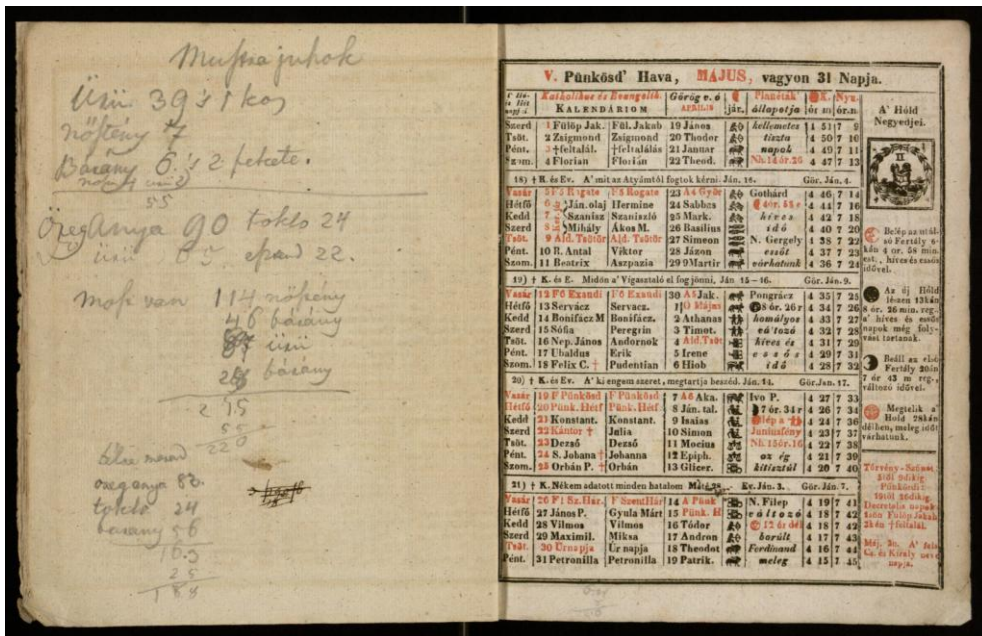 Mustra juhok
Ürü 39 's 1 kos
nöstény 7
Bárány 6. 's 2 fekete.
55
Öreg Anya 90 toklo 24
ürü 22.
most van 114 nöstény
46 bárány
ürü
bárány
215
55
220
öreganya 83.
toklo 24
bárany 56
163
25
188
V. Pünkösd' Hava, MÁJUS, vagyon 31 Napja.
Katholikus és Evangelik. KALENDÁRIOM Görög v. ó APRILIS jár. Planéták állapotja
A' Hóld Negyedjei.
Szerd 1 Fülöp Jak. Fül. Jakab 19 János kellemetes 4 51 7 9
Tsöt. 2 Zsigmond Zsigmond 20 Thodor tiszta 4 50 7 10
Pént. 3 †feltalál. †feltalálás 21 Januar napok 4 49 7 11
Szom. 4 Florian Florián 22 Theod. Nh. 14 ór. 26 4 47 7 13
18) † R. és Ev. A' mit az Atyámtól fogtok kérni. Ján. 16. Gör. Ján. 4.
Vasár 5 F5 Rogate F5 Rogate 23 A4 Győr Gothárd 4 46 7 14
Hétfő 6 Ján. olaj Hermine 24 Sabbas 4 44 7 16
Kedd 7 Szanisz Szaniszló 25 Mark. híves 4 42 7 18
Szerd 8 Mihály Ákos M. 26 Basilius idő 4 40 7 20
Tsöt. 9 Ald. Tsötör Ald. Tsötör 27 Simeon N. Gergely 4 38 7 22
Pént. 10 R. Antal Viktor 28 Jázon essőt 4 37 7 23
Szom. 11 Beatrix Aszpazia 29 Martir várhatunk 4 36 7 24
19) † K. és E. Midőn a' Vigasztaló el fog jönni. Ján 15—16. Gör. Ján. 9.
Vasár 12 F6 Exaudi F6 Exaudi 30 A5 Jak. Pongrácz 4 35 7 25
Hétfő 13 Servácz Servacz. 1 Május 8 ór. 26 r 4 34 7 26
Kedd 14 Bonifácz M Bonifácz. 2 Athanas homályos 4 33 7 27
Szerd 15 Sófia Peregrin 3 Timot. változó 4 32 7 28
Tsöt. 16 Nep. János Andornok 4 Ald. Tsöt híves és 4 31 7 29
Pént. 17 Ubaldus Erik 5 Irene essős 4 29 7 31
Szom. 18 Felix C. † Pudentian 6 Hiob idő 4 28 7 32
20) † K. és Ev. A' ki engem szeret, megtartja beszéd. Ján. 14. Gör. Jan. 17.
Vasár 19 F Pünkösd F Pünkösd 7 A6 Aka. Ivo P. 4 27 7 33
Hétfő 20 Pünk. Hétf Pünk. Hétf 8 Ján. tal. 7 ór. 34 r 4 26 7 34
Kedd 21 Konstant. Konstant. 9 Isaias lép a 4 24 7 36
Szerd 22 Kántor † Julia 10 Simon Juniusfény 4 23 7 37
Tsöt. 23 Dezső Dezső 11 Mocius Nh. 15 ór. 16 4 22 7 38
Pént. 24 S. Johana † Johanna 12 Epiph. az ég 4 21 7 39
Szom. 25 Orbán P. † Orbán 13 Glicer. kitisztúl 4 20 7 40
21) † K. Nékem adatott minden hatalom Máté 28. Ev. Ján. 3. Gör. Ján. 7.
Vasár 26 F1 Sz. Hár. F Szent Hár 14 A Pünk N. Filep 4 19 7 41
Hétfő 27 János P. Gyula Márt 15 Pünk. H változó 4 18 7 42
Kedd 28 Vilmos Vilmos 16 Tódor 12 ór dél 4 18 7 42
Szerd 29 Maximil. Miksa 17 Andron borúlt 4 17 7 43
Tsöt. 30 Úrnapja Úr napja 18 Theodot Ferdinand 4 16 7 44
Pént. 31 Petronilla Petronilla 19 Patrik. meleg 4 15 7 45
II
Belép az utólsó Fertály 6-kán 4 ór. 58 min. est., híves és essős idővel.
Az új Hóld lészen 13kán 8 ór. 26 min. reg. a' híves és essős napok még folyvást tartanak.
Beáll az első Fertály 20án 7 ór 43 m reg., változó idővel.
Megtelik a' Hold 28kán délben, meleg időt várhatunk.
Törvény-Szünet 5től 8dikig. Pünkösdi: 19től 26dikig. Decretalis napok: 1són Fülöp Jakab. 3kán †feltalál.
Máj. 30. A' fels. Cs. és Király neve napja.